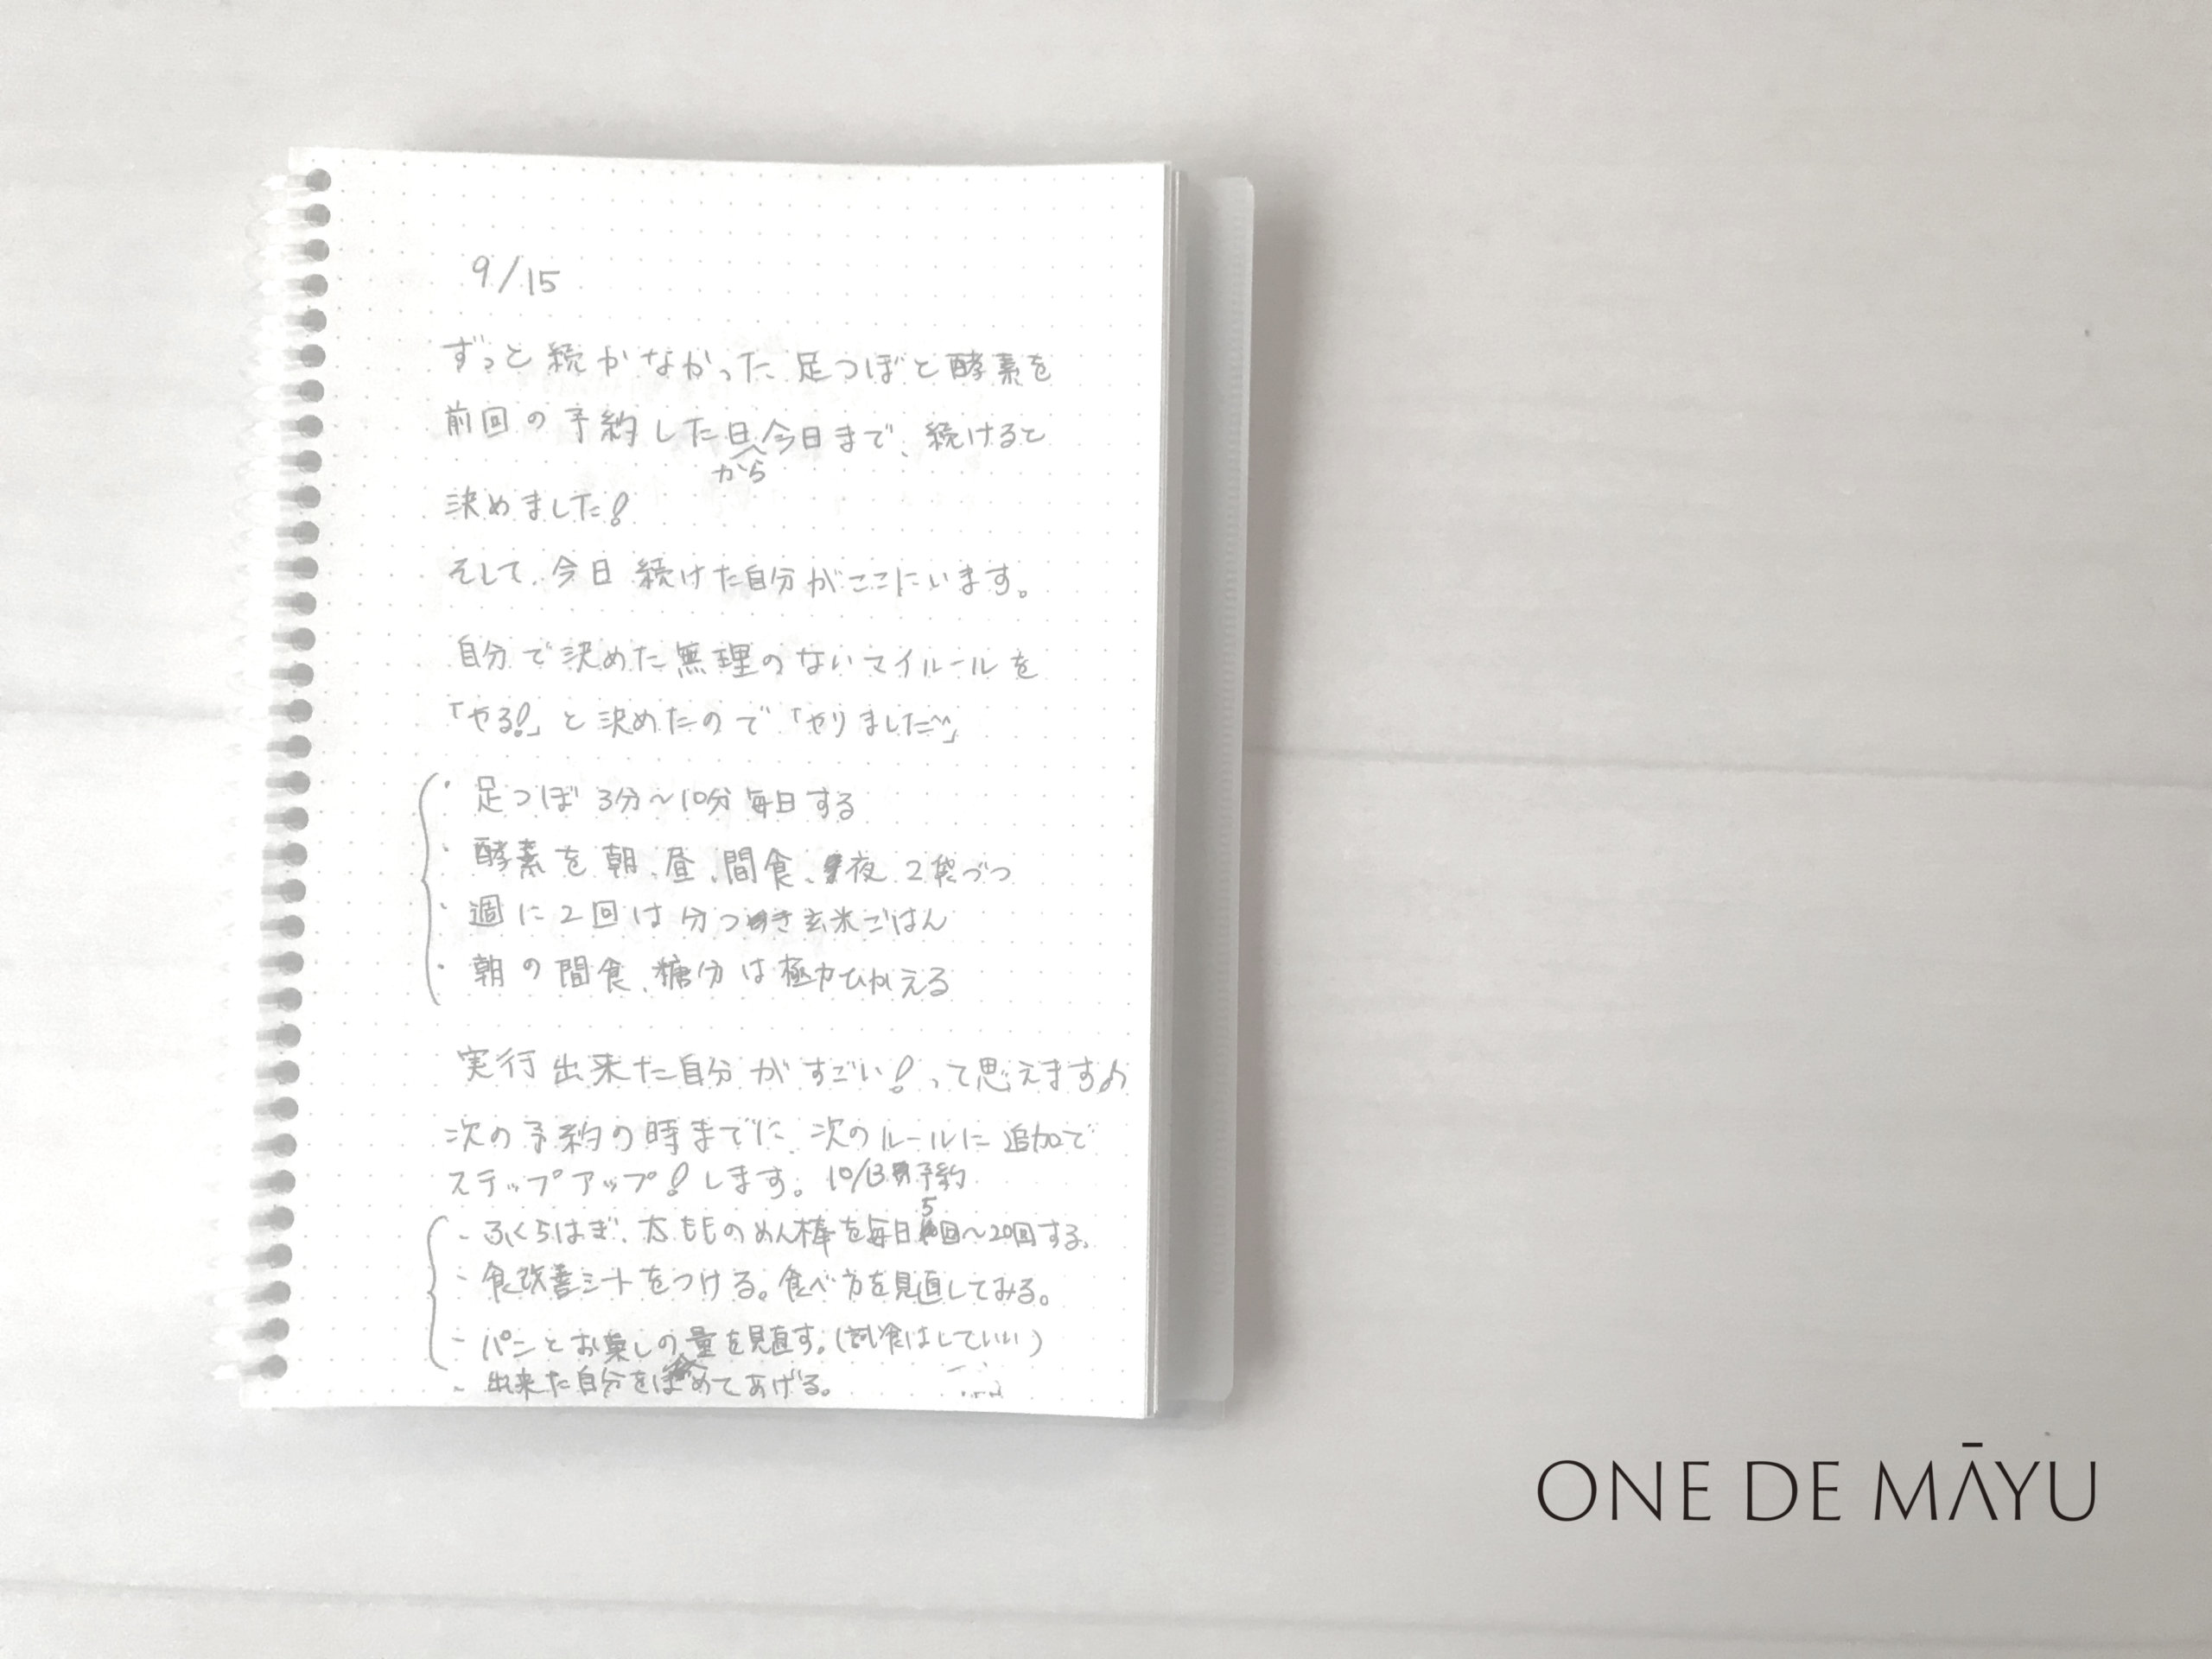 9/15
ずっと続かなかった足つぼと酵素を
前回の予約した日から今日まで、続けると
決めました!
そして、今日続けた自分がここにいます。
自分で決めた無理のないマイルールを
「やる!」と決めたので「やりました^^」
・足つぼ 3分〜10分 毎日する
・酵素を朝、昼、間食、夜 2袋づつ
・週に2回は分つき玄米ごはん
・朝の間食、糖分は極力ひかえる
実行出来た自分がすごい!って思えます♪
次の予約の時までに、次のルールに追加で
ステップアップ!します。10/13予約
- ふくらはぎ、太もものめん棒を毎日5回〜20回する。
- 食改善シートをつける。食べ方を見直してみる。
- パンとお菓しの量を見直す。(試食はしていい)
- 出来た自分をほめてあげる。
ONE DE MĀYU